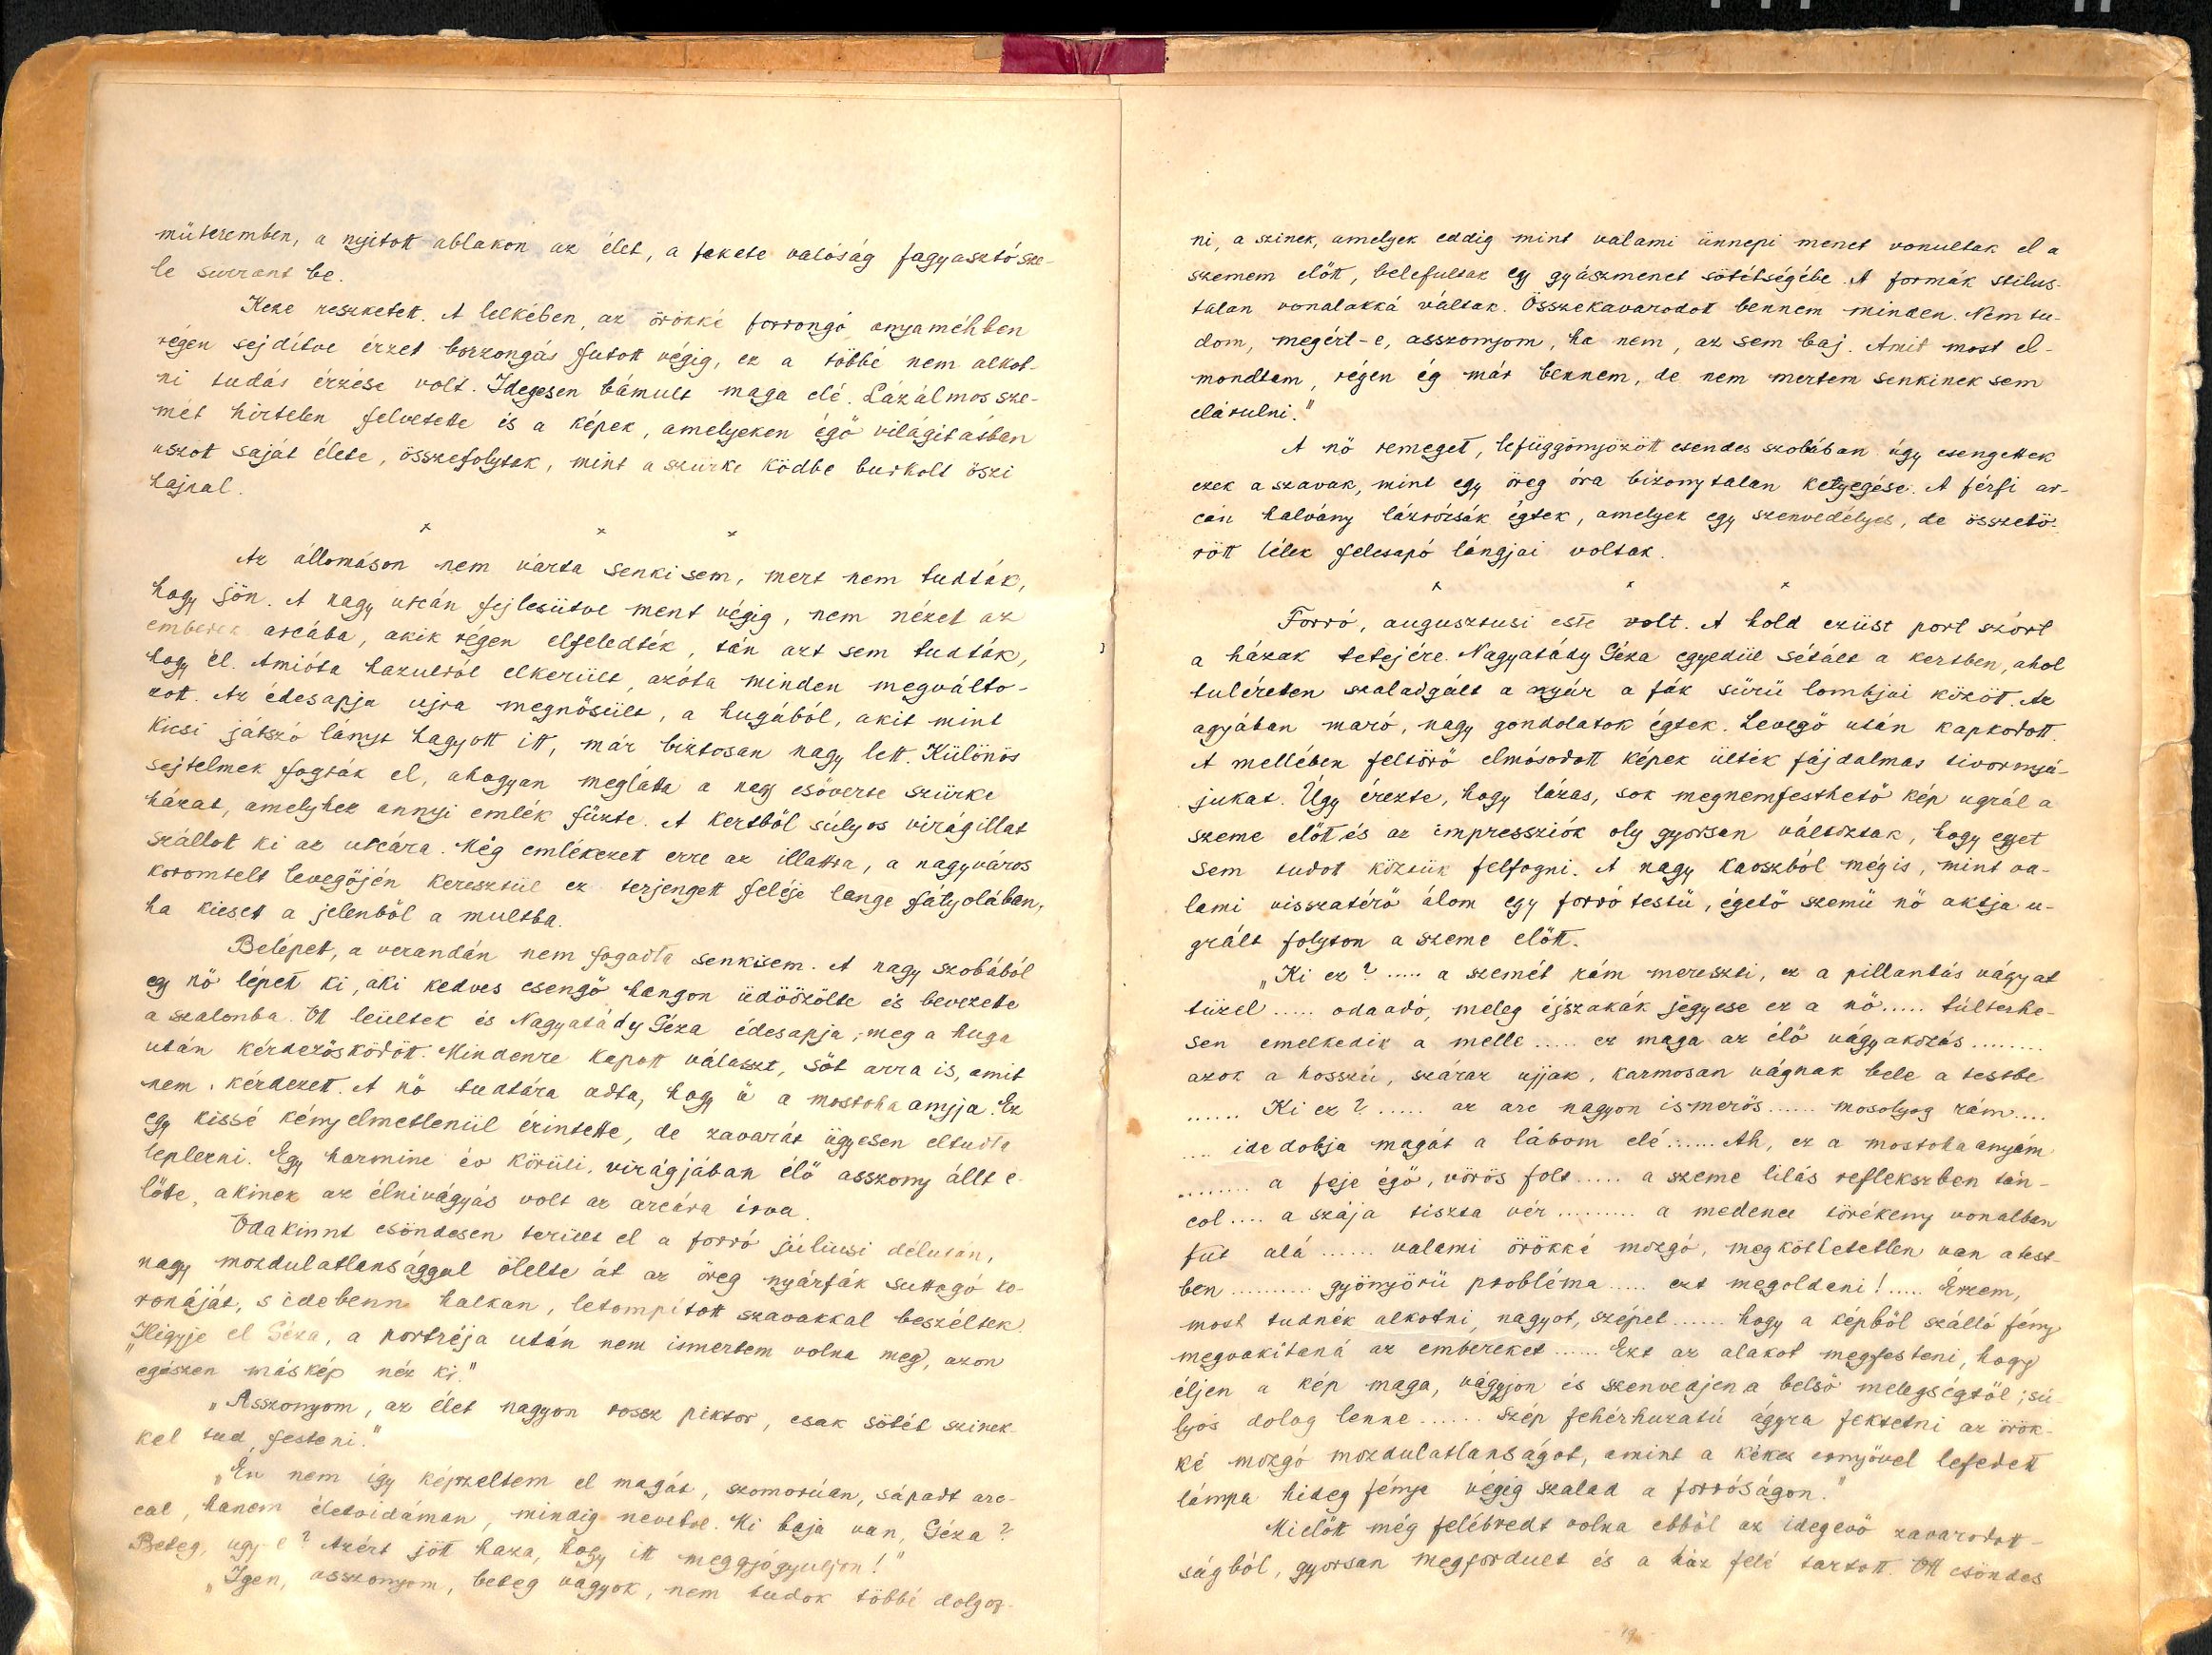 műteremben, a nyitott ablakon az élet, a fekete valóság fagyasztó sze-
le surrant be.
Keze reszketett. A lelkében, az örökké forrongó anyaméhben
régen sejdítve érzet borzongás futott végig, ez a többé nem alkot-
ni tudás érzése volt. Idegesen bámult maga elé. Lázálmos sze-
mét hirtelen felvetette és a képek, amelyeken égő világitásban
uszott saját élete, összefolytak, mint a szürke ködbe burkolt őszi
hajnal.
x x x
Az állomáson nem várta senkisem, mert nem tudták,
hogy jön. A nagy utcán fejlesütve ment végig, nem nézet az
emberek arcába, akik régen elfeledték, tán azt sem tudták,
hogy él. Amióta hazulról elkerült, azóta minden megválto-
zott. Az édesapja ujra megnősült, a hugából, akit mint
kicsi játszó lányt hagyott itt, már biztosan nagy lett. Különös
sejtelmek fogták el, ahogyan meglátta a nagy esőverte szürke
házat, amelyhez annyi emlék fűzte. A kertből súlyos virágillat
szállott ki az utcára. Még emlékezett erre az illatra, a nagyváros
koromtelt levegőjén keresztül ez terjengett feléje lange fátyolában,
ha kieset a jelenből a multba.
Belépet, a verandán nem fogadta senkisem. A nagy szobából
egy nő lépett ki, aki kedves csengő hangon üdvözölte és bevezete
a szalonba. Ott leültek és Nagyatády Géza édesapja, meg a huga
után kérdezősködött. Mindenre kapott választ, sőt arra is, amit
nem kérdezett. A nő tudtára adta, hogy ő a mostoha anyja. Ez
egy kissé kényelmetlenül érintette, de zavarát ügyesen eltudta
leplezni. Egy harminc év körüli, virágjában élő asszony állt e-
lőtte, akinek az élnivágyás volt az arcára írva.
Odakinnt csöndesen terült el a forró júliusi délután,
nagy mozdulatlansággal ölelte át az öreg nyárfák suttogó ko-
ronáját, s idebenn halkan, letompított szavakkal beszéltek.
"Higyje el Géza, a portréja után nem ismertem volna meg, azon
egészen máskép néz ki."
"Asszonyom, az élet nagyon rossz piktor, csak sötét szinek-
kel tud festeni."
"Én nem így képzeltem el magát, szomorúan, sápadt arc-
cal, hanem életvidáman, mindig nevetve. Mi baja van, Géza?
Beteg, ugy-e? Azért jött haza, hogy itt meggyógyuljon!"
"Igen, asszonyom, beteg vagyok, nem tudok többé dolgoz-
ni, a szinek, amelyek eddig mint valami ünnepi menet vonultak el a
szemem előtt, belefultak egy gyászmenet sötétségébe. A formák stilus-
talan vonalakká váltak. Összekavarodott bennem minden. Nem tu-
dom, megért-e, asszonyom, ha nem, az sem baj. Amit most el-
mondtam, régen ég már bennem, de nem mertem senkinek sem
elárulni."
A nő remeget, lefüggönyözött csendes szobában úgy csengettek
ezek a szavak, mint egy öreg óra bizonytalan ketyegése. A férfi ar-
cán halvány lázrózsák égtek, amelyek egy szenvedélyes, de összetö-
rött lélek felcsapó lángjai voltak.
x x x
Forró, augusztusi este volt. A hold ezüst port szórt
a házak tetejére. Nagyatády Géza egyedül sétált a kertben, ahol
tuléretten szaladgált a nyár a fák sürü lombjai között. Az
agyában maró, nagy gondolatok égtek. Levegő után kapkodott.
A mellében feltörő elmosódott képek ülték fájdalmas tivornyá-
jukat. Úgy érezte, hogy lázas, sok megnemfesthető kép ugrál a
szeme előtt és az impressziók oly gyorsan változtak, hogy egyet
sem tudott köztük felfogni. A nagy kaoszból mégis, mint va-
lami visszatérő álom egy forró testü, égető szemü nő aktja u-
grált folyton a szeme előtt.
"Ki ez? ..... a szemét rám mereszti, ez a pillantás vágyat
tüzel ..... odaadó, meleg éjszakák jegyese ez a nő..... túlterhe-
sen emelkedik a melle ..... ez maga az élő vágyakozás ........
azok a hosszú, száraz ujjak, karmosan vágnak bele a testbe
...... Ki ez? ..... az arc nagyon ismerős ...... mosolyog rám ....
.... ide dobja magát a lábom elé ...... Ah, ez a mostoha anyám
........ a feje égő, vörös folt ..... a szeme lilás refleksben tán-
col .... a szája tiszta vér ......... a medence törékeny vonalban
fut alá ...... valami örökké mozgó, megköthetetlen van a test-
ben .......... gyönyörü probléma ..... ezt megoldani! ..... Érzem,
most tudnék alkotni, nagyot, szépet ...... hogy a képből szálló fény
megvakítaná az embereket ...... Ezt az alakot megfesteni, hogy
éljen a kép maga, vágyjon és szenvedjen a belső melegségtől; sú-
lyos dolog lenne ...... Szép fehérhuzatú ágyra fektetni az örök-
ké mozgó mozdulatlanságot, amint a kékes ernyővel lefedett
lámpa hideg fénye végig szalad a forróságon."
Mielőtt még felébredt volna ebből az idegevő zavarodott-
ságból, gyorsan megfordult és a ház felé tartott. Ott csöndes